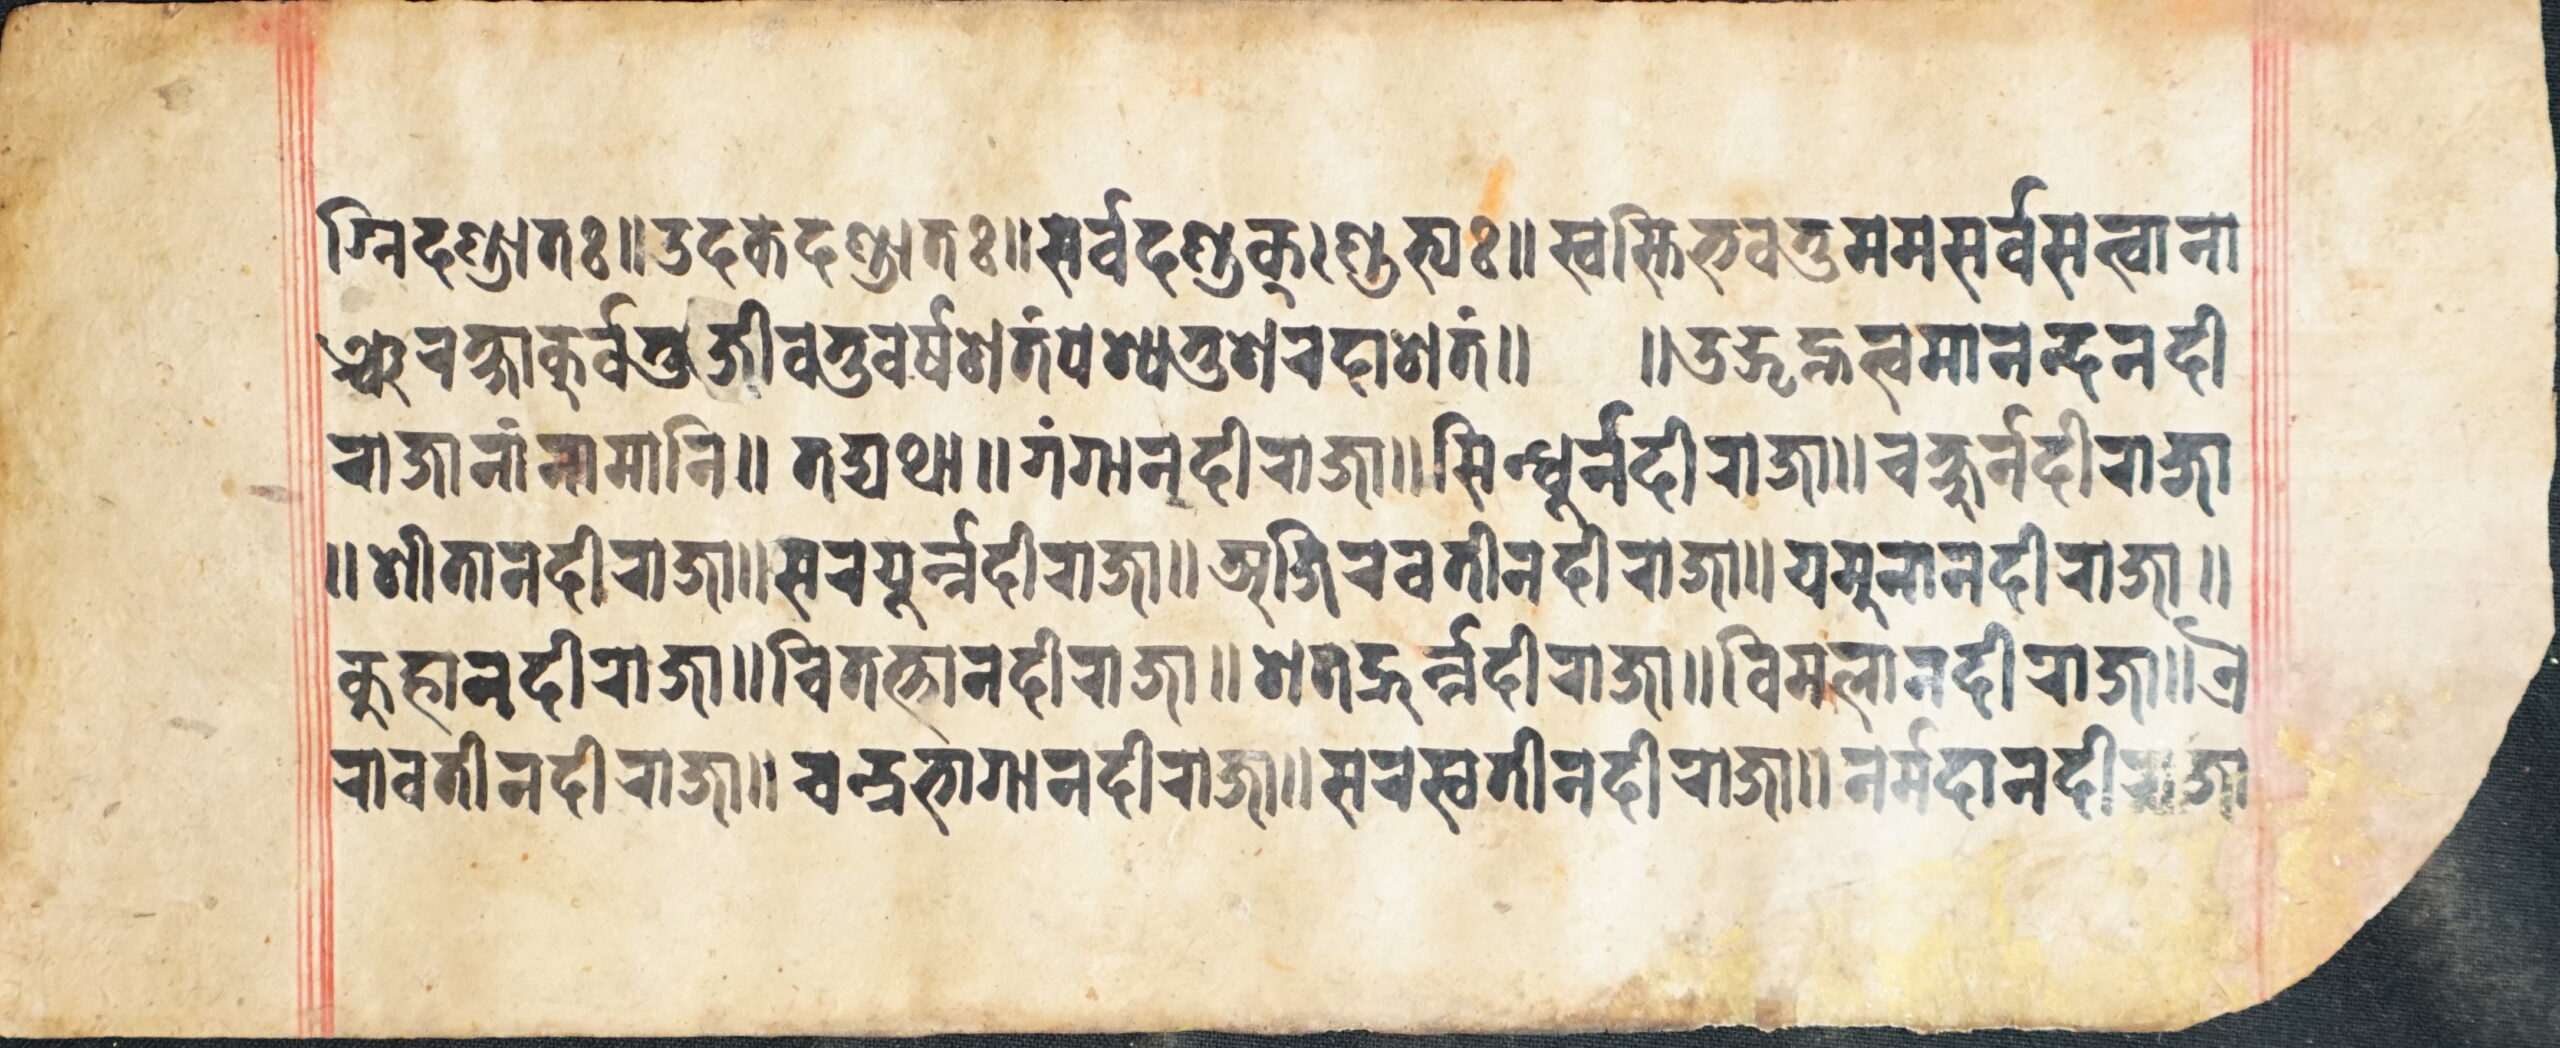 ग्निदण्डातः॥उदकदण्डातः॥सर्वदण्डक्।ण्डभ्यः॥ स्वस्तिभवतुममसर्वसत्वाना
ञ्चरक्षाकुर्वतुजीवतुवर्षशतंपश्यतुशरदाशतं॥ ॥उद्गृह्नत्वमानन्दनदी
राजानांनामानि॥ तद्यथा॥ गंगानदीराजा॥ सिन्धुर्नदीराजा॥ चक्षुर्नदीराजा
॥ शीतानदीराजा॥ सरयूर्न्नदीराजा॥ अजिरवतीनदीराजा॥ यमुनानदीराजा॥
कुहानदीराजा॥ वितस्तानदीराजा॥ शतद्रुर्न्नदीराजा॥ विमलानदीराजा॥ ऐ
रावतीनदीराजा॥ चन्द्रभागानदीराजा॥ सरस्वतीनदीराजा॥ नर्मदानदीराजा